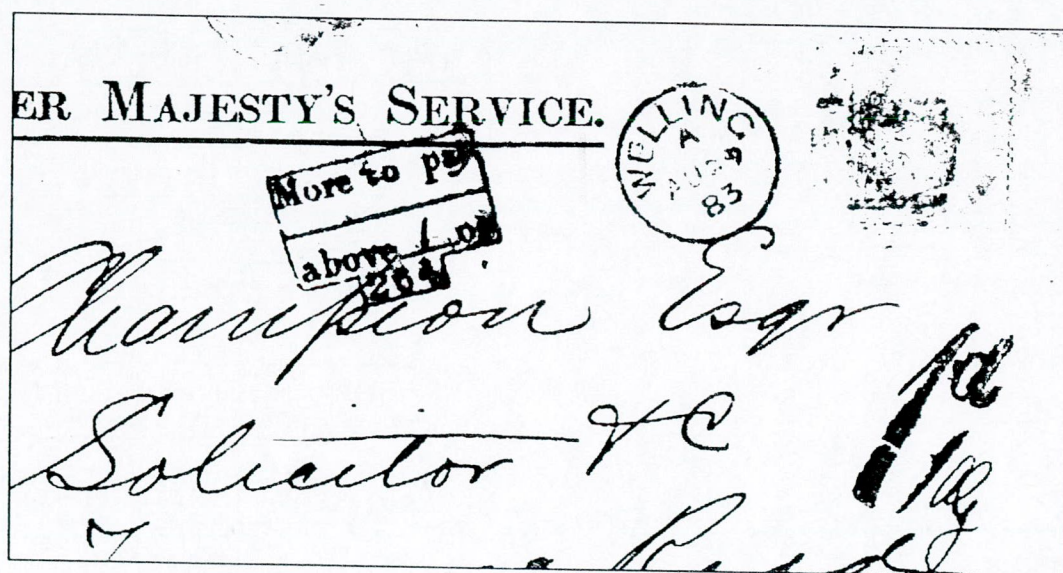 ER MAJESTY'S SERVICE.
WELLING
A
AU
83
More to pay
above 1 oz
Champion Esqr
Solicitor &c
7
Road
1d